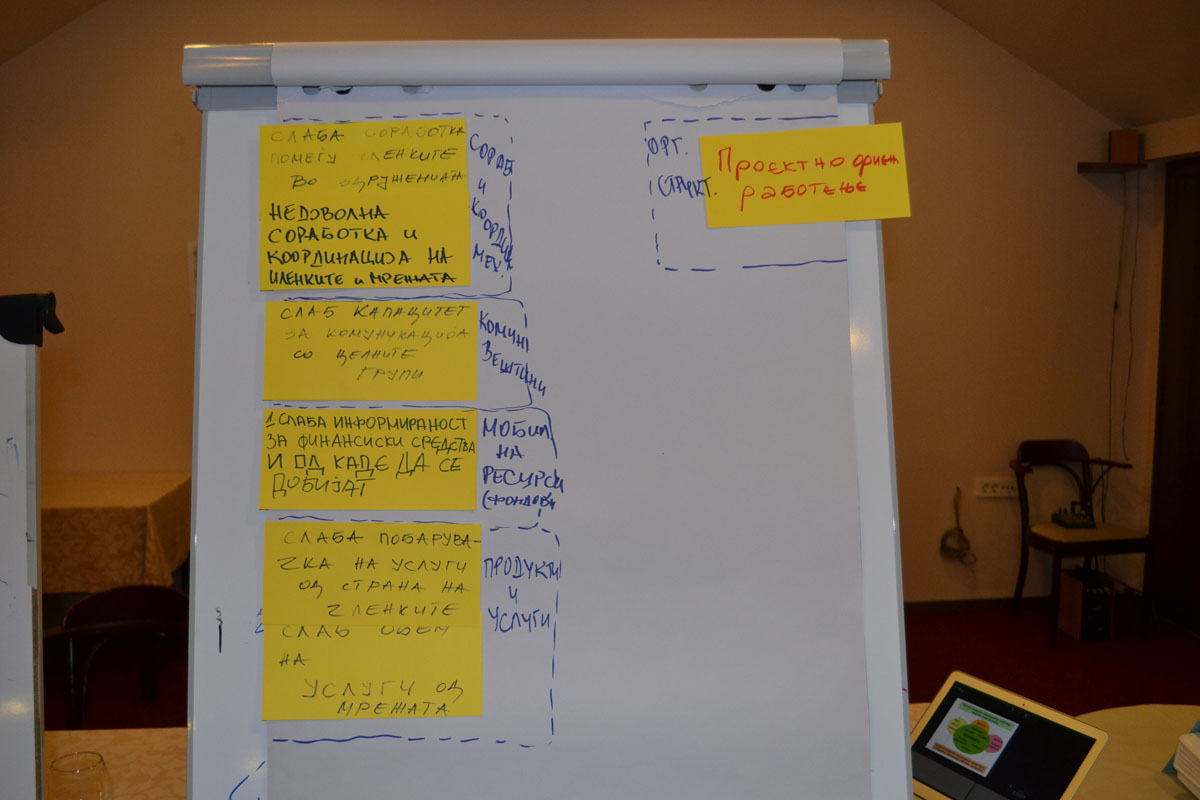 СЛАБА СОРАБОТКА
ПОМЕЃУ ЧЛЕНКИТЕ
ВО ЗДРУЖЕНИЈАТА
НЕДОВОЛНА
СОРАБОТКА И
КООРДИНАЦИЈА НА
ЧЛЕНКИТЕ И МРЕЖАТА
СОРАБ
И
КООРДИН
МЕХ.
СЛАБ КАПАЦИТЕТ
ЗА КОМУНИКАЦИЈА
СО ЦЕЛНИТЕ
ГРУПИ
КОМУНИ
ВЕШТИНИ
1 СЛАБА ИНФОРМИРАНОСТ
ЗА ФИНАНСИСКИ СРЕДСТВА
И ОД КАДЕ ДА СЕ
ДОБИЈАТ
МОБИЛ
НА
РЕСУРСИ
(ФОНДОВИ
СЛАБА ПОБАРУВА-
ЧКА НА УСЛУГИ
ОД СТРАНА НА
ЧЛЕНКИТЕ
СЛАБ ОБЕМ
НА
УСЛУГИ ОД
МРЕЖАТА
ПРОДУКТИ
И
УСЛУГИ
ОРГ.
СТРУКТ.
Проектно ориен
работење